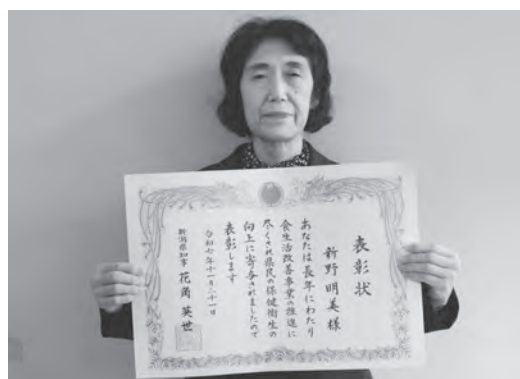 表彰状
新野明美様
あなたは長年にわたり
食生活改善事業の推進に
尽くされ県民の保健衛生の
向上に寄与されましたので
表彰します
令和七年十一月二十一日
新潟県知事 花角英世